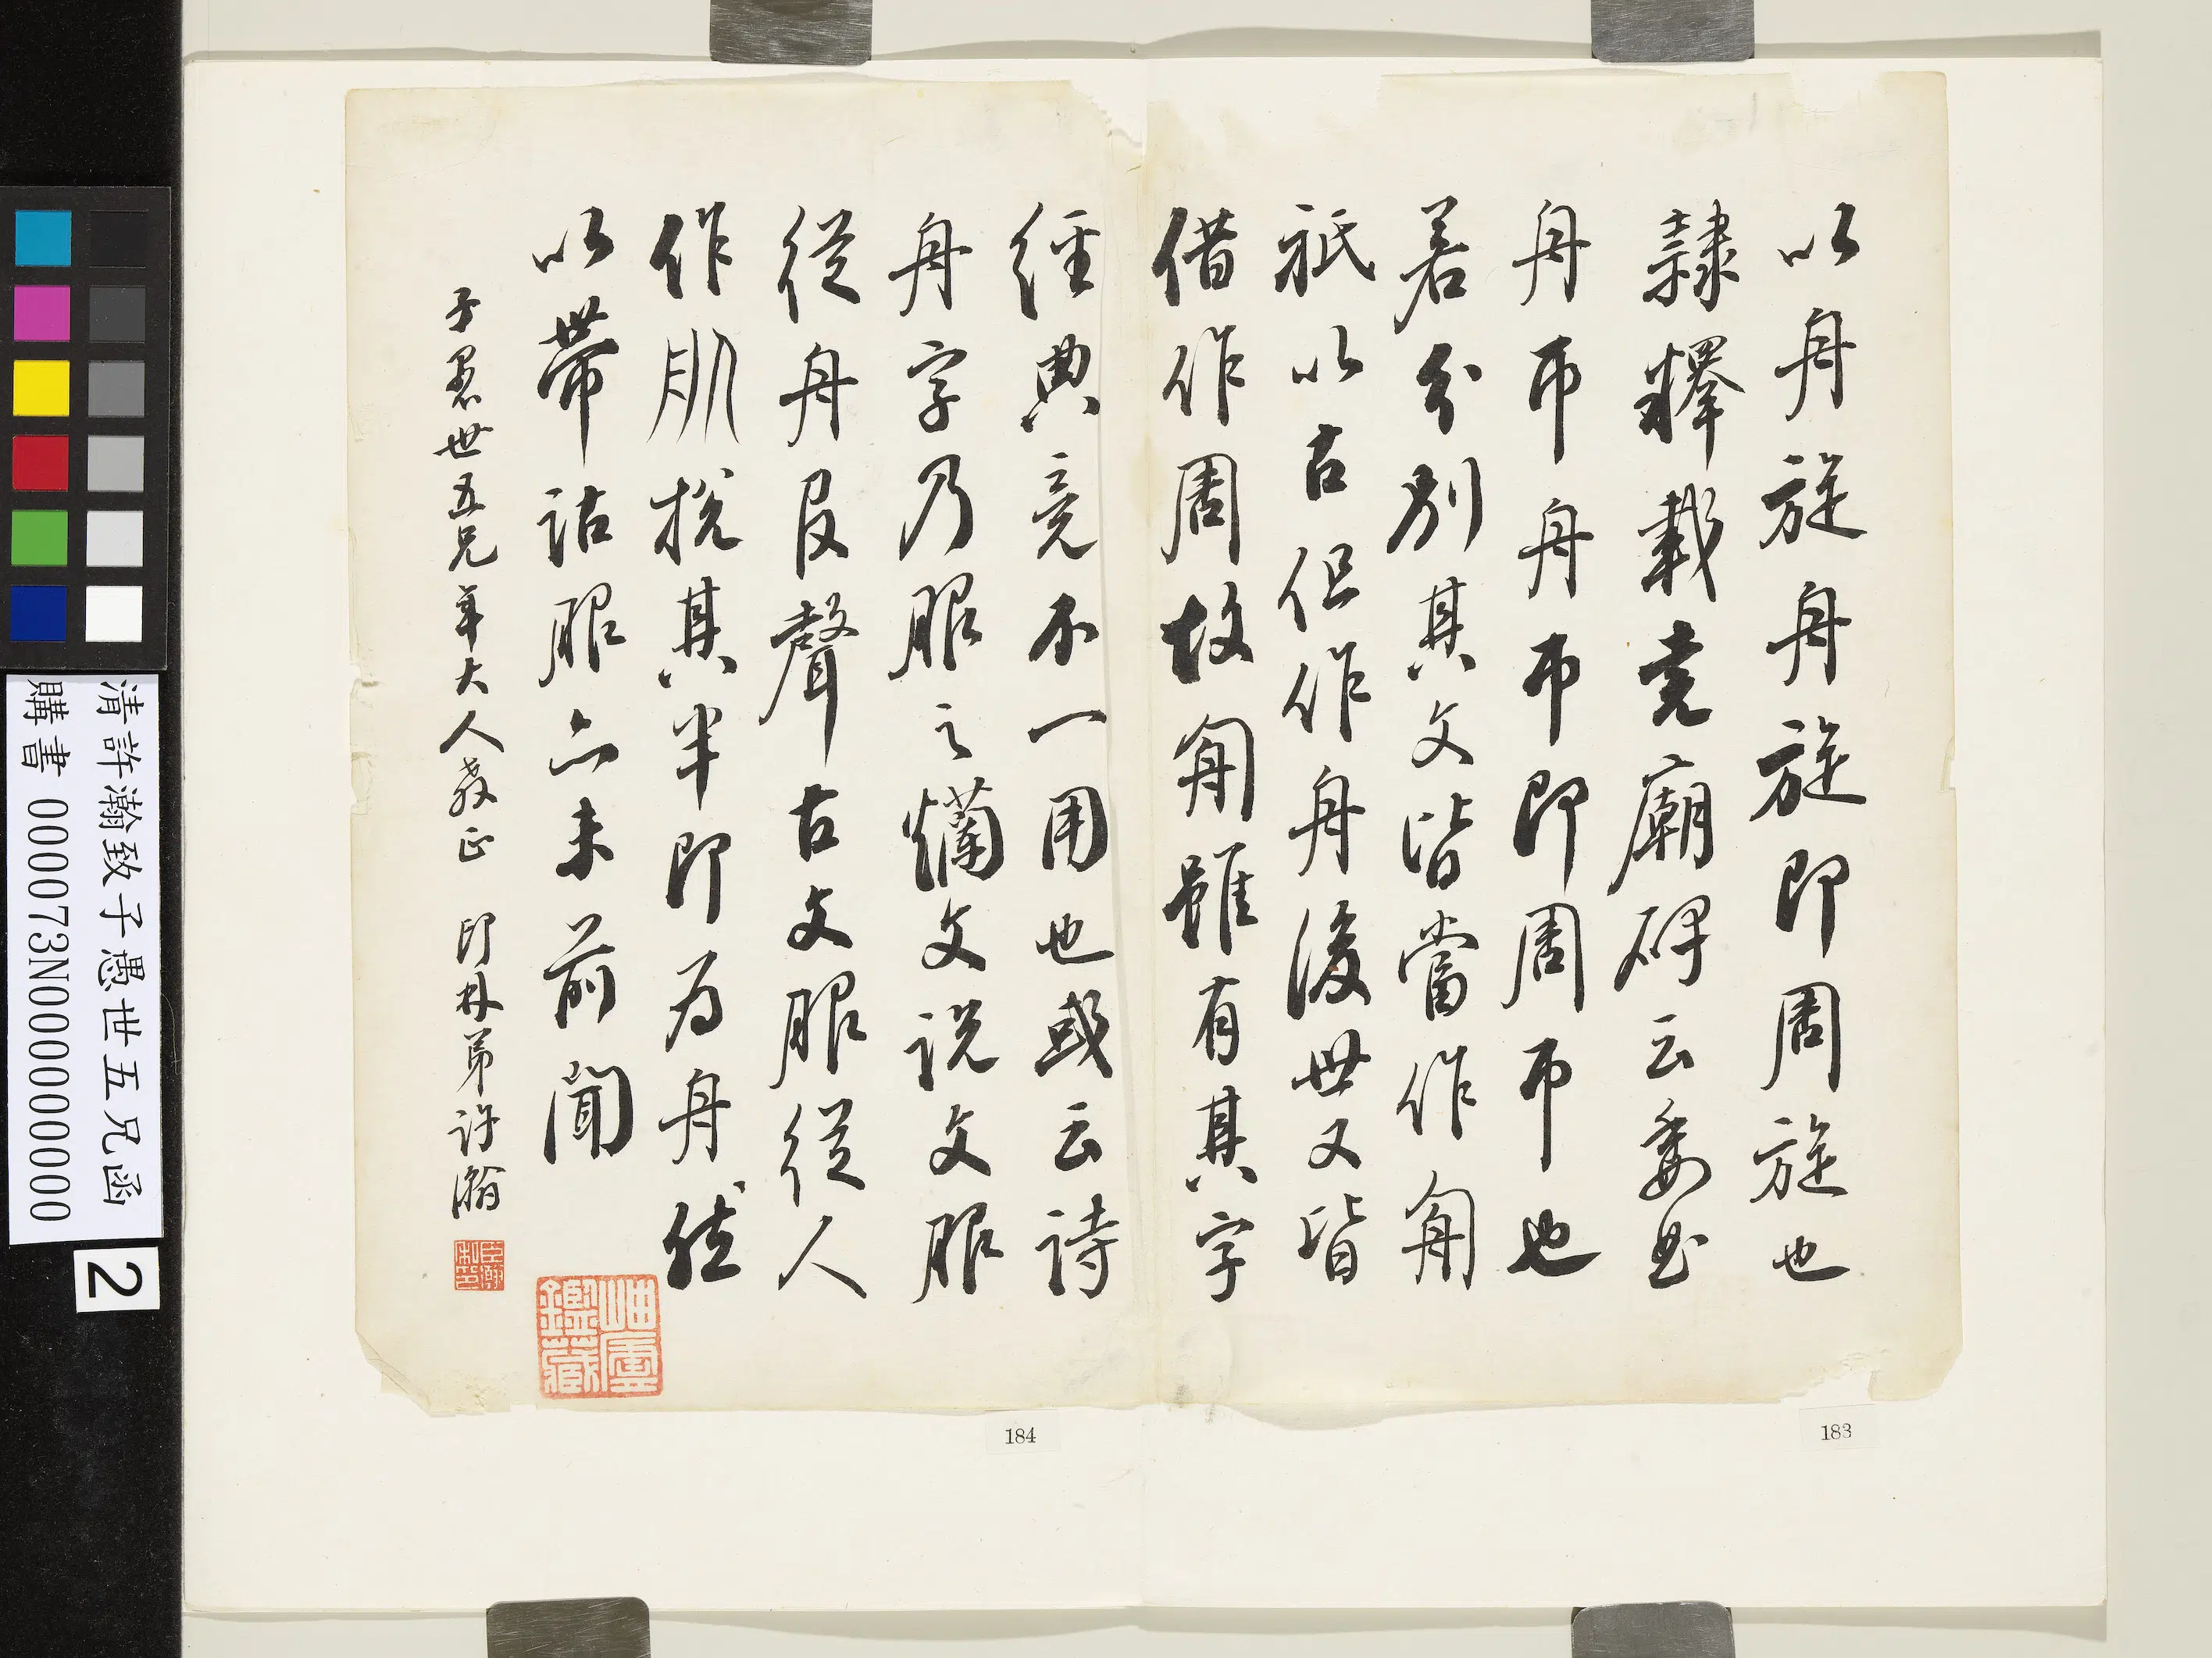 以舟旋舟旋即周旋也
隸釋載堯廟碑云委曲
舟帀舟帀即周帀也
若分別其文皆當作匊
祇以古但作舟後世又皆
借作周故匊雖有其字
經典竟不一用也或云詩
舟字乃服之爛文說文服
從舟𠬝聲古文服從人
作𦨈挩其半即為舟然
以帶詁服亦未前聞
子愚世五兄年大人教正 印林弟許瀚
臣瀚
私印
岫廬
鑑藏
183
184
清許瀚致子愚世五兄函
購書 0000073N000000000
2